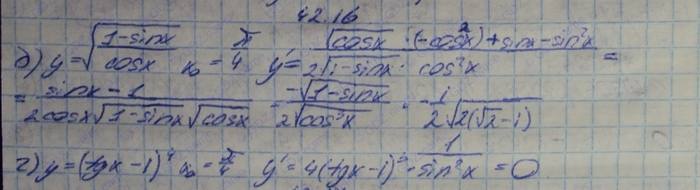 42.16
б) y = √((1-sinx)/(cosx)) x₀ = π/4 y' = (√(cosx) · (-cos²x) + sinx - sin²x)/(2√(1-sinx) · cos²x) =
= (sinx - 1)/(2cosx√(1-sinx)√(cosx)) = (-√(1-sinx))/(2√(cos³x)) = -1/(2√(2(√2-1)))
г) y = (tgx-1)⁴ x₀ = π/4 y' = 4(tgx-1)³ · 1/(sin²x) = 0